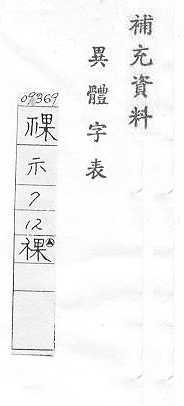 補充資料
異體字表
09369
祼
示
7
12
祼